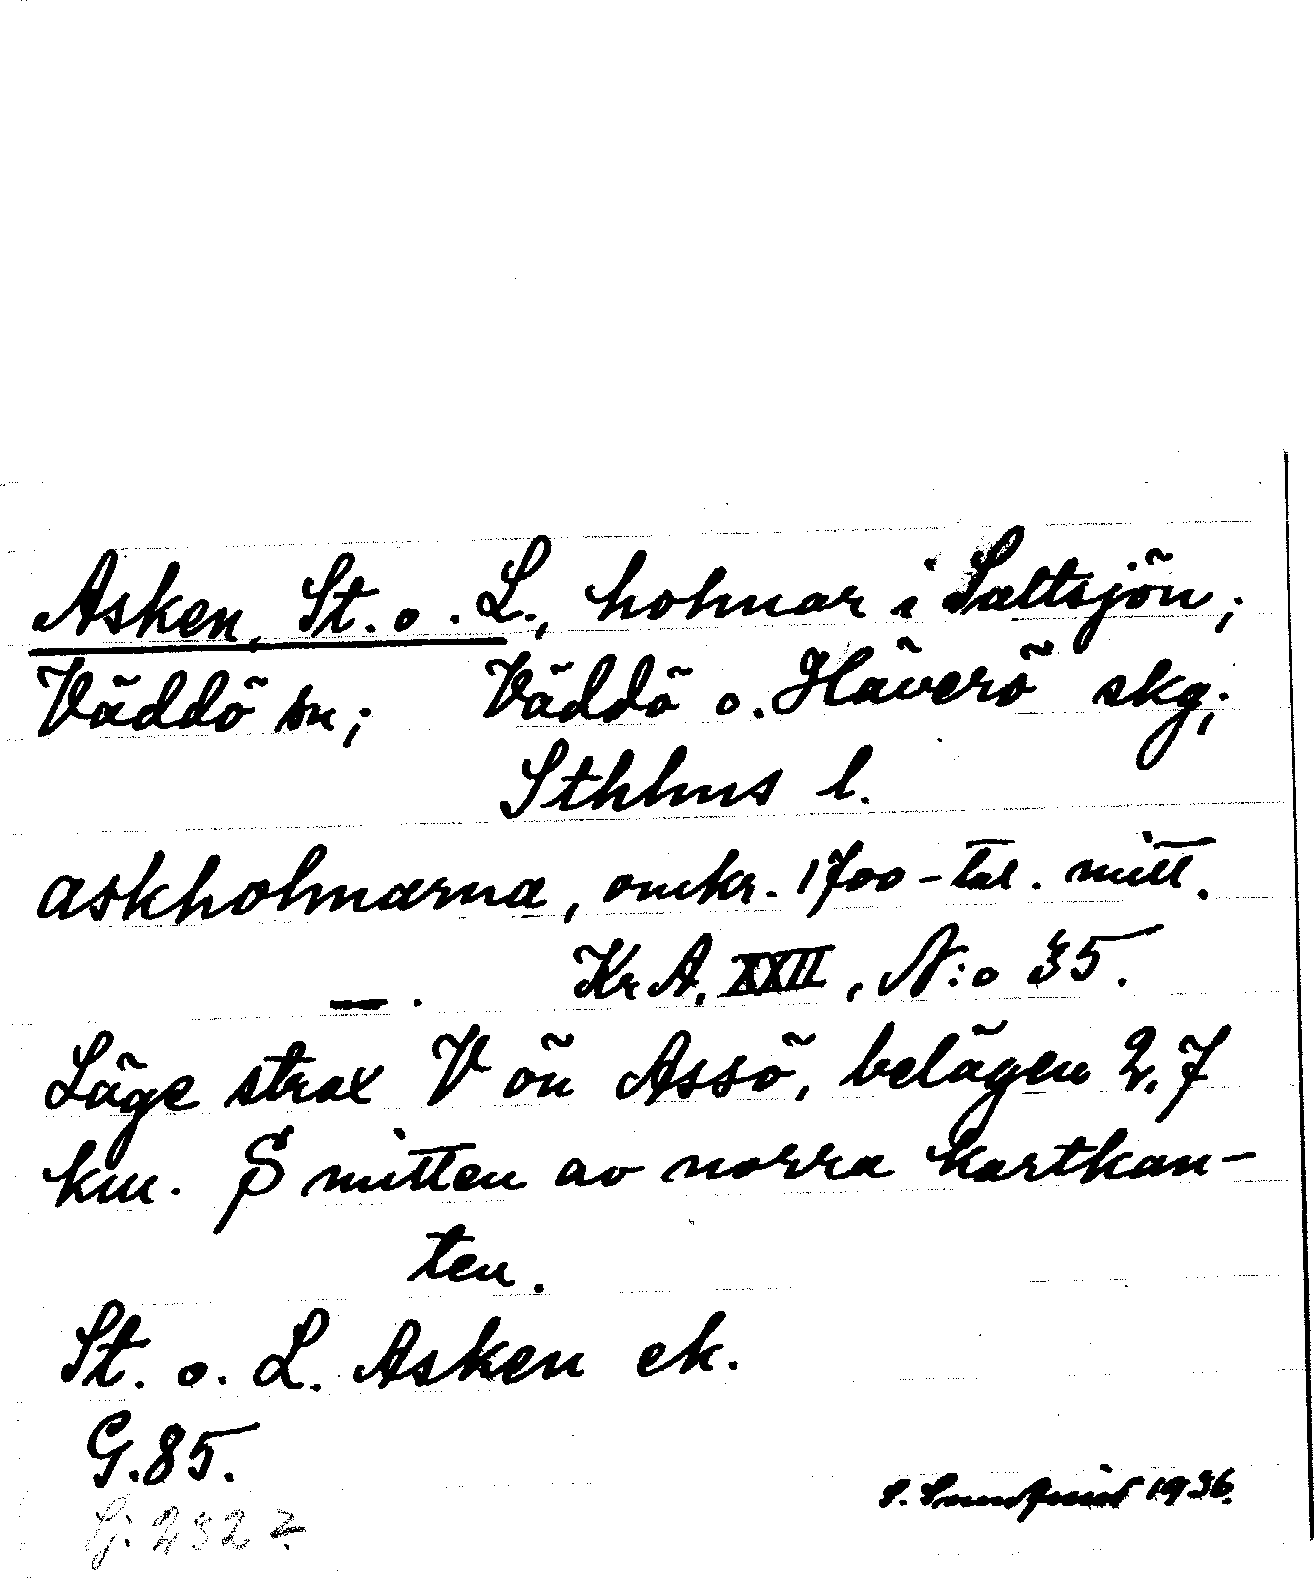 Asken, St. o. L., holmar i Saltsjön;
Väddö sn; Väddö o. Häverö skg;
Sthlms l.
askholmarna, omkr. 1700-tal. mitt.
Kr A, XXII, N:o 35.
—.
Läge strax V ön Assö, belägen 2,7
km. S mitten av norra kartkan-
ten.
St. o. L. Asken ek.
G.85.
S. Sundquist 1936.
G. 2827.